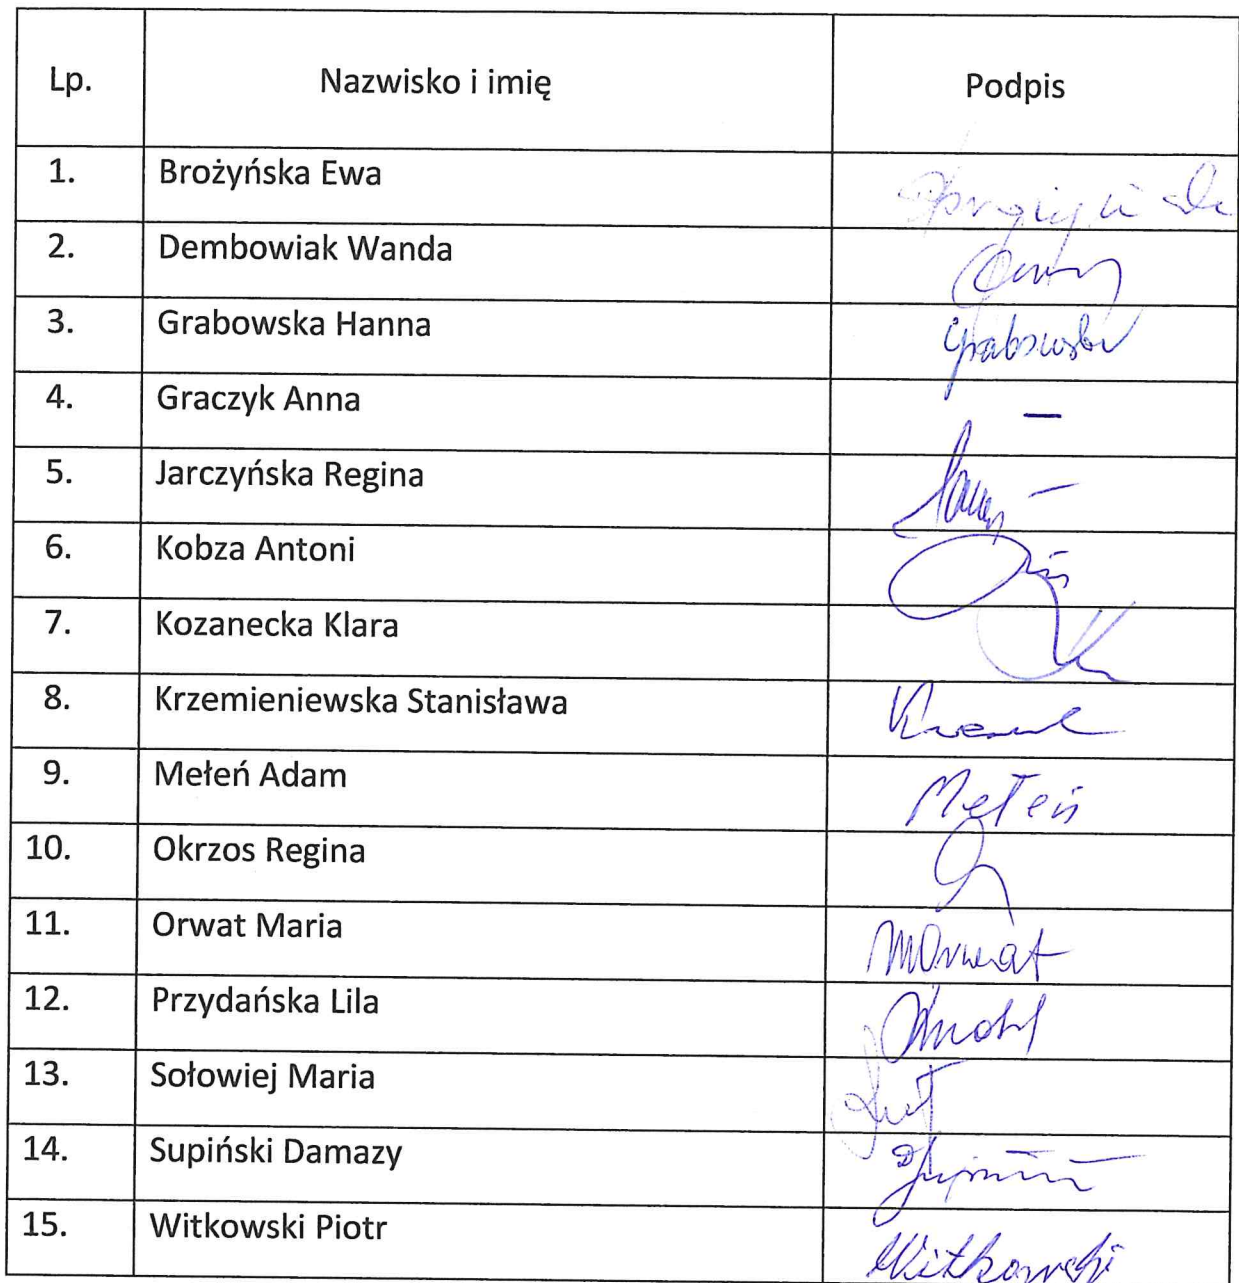 Lp. Nazwisko i imię Podpis
1. Brożyńska Ewa
2. Dembowiak Wanda
3. Grabowska Hanna Grabowska
4. Graczyk Anna —
5. Jarczyńska Regina
6. Kobza Antoni
7. Kozanecka Klara
8. Krzemieniewska Stanisława
9. Mełeń Adam Mełeń
10. Okrzos Regina
11. Orwat Maria MOrwat
12. Przydańska Lila
13. Sołowiej Maria
14. Supiński Damazy
15. Witkowski Piotr Witkowski